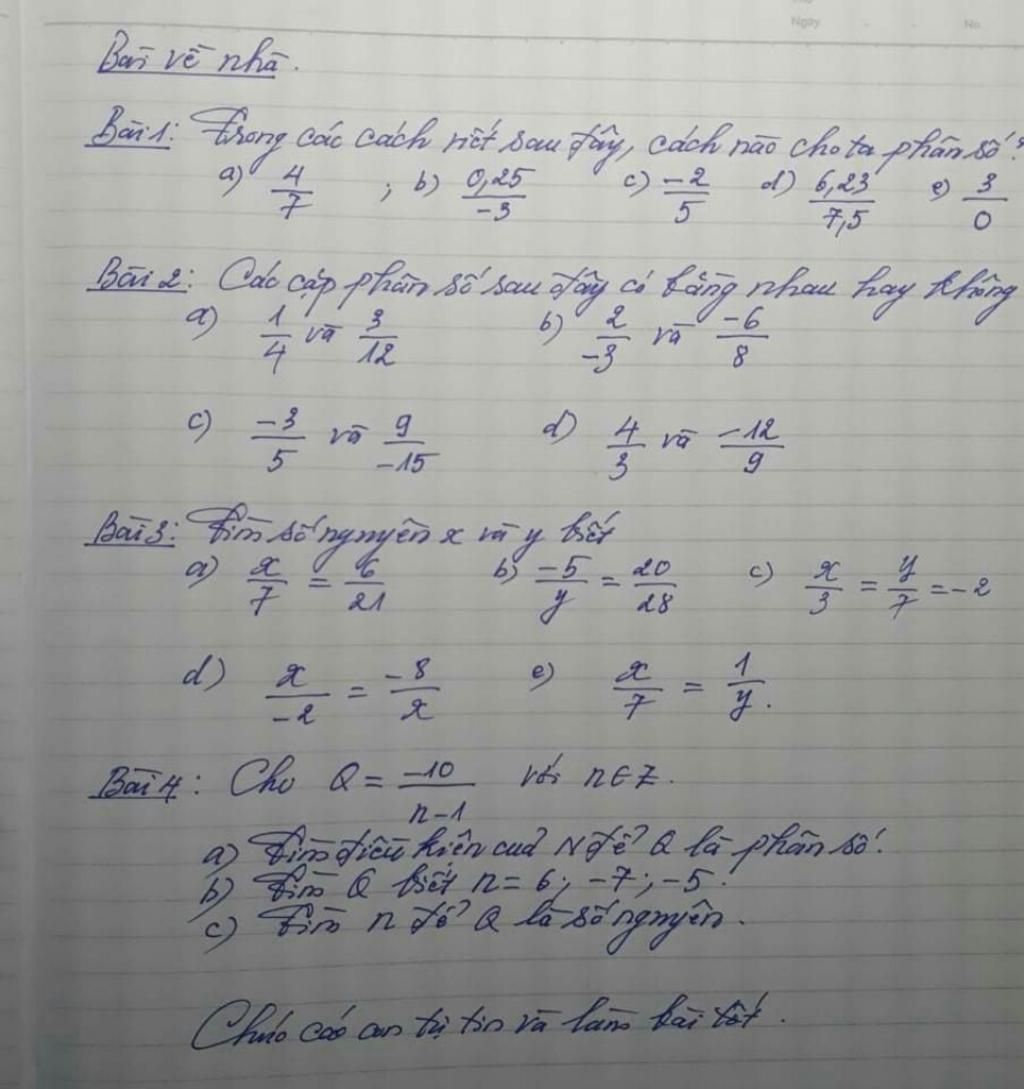 Ngày - - No.
Bài về nhà.
Bài 1: Trong các cách viết sau đây, cách nào cho ta phân số?
a) 4/7 ; b) 0,25/-3 c) -2/5 d) 6,23/7,5 e) 3/0
Bài 2: Các cặp phân số sau đây có bằng nhau hay không
a) 1/4 và 3/12 b) 2/-3 và -6/8
c) -3/5 và 9/-15 d) 4/3 và -12/9
Bài 3: Tìm số nguyên x và y biết
a) x/7 = 6/21 b) -5/y = 20/28 c) x/3 = y/7 = -2
d) x/-2 = -8/x e) x/7 = 1/y.
Bài 4: Cho Q = -10/n-1 với n∈Z.
a) Tìm điều kiện của N để Q là phân số.
b) Tìm Q biết n = 6; -7; -5.
c) Tìm n để Q là số nguyên.
Chúc các con tự tin và làm bài tốt.